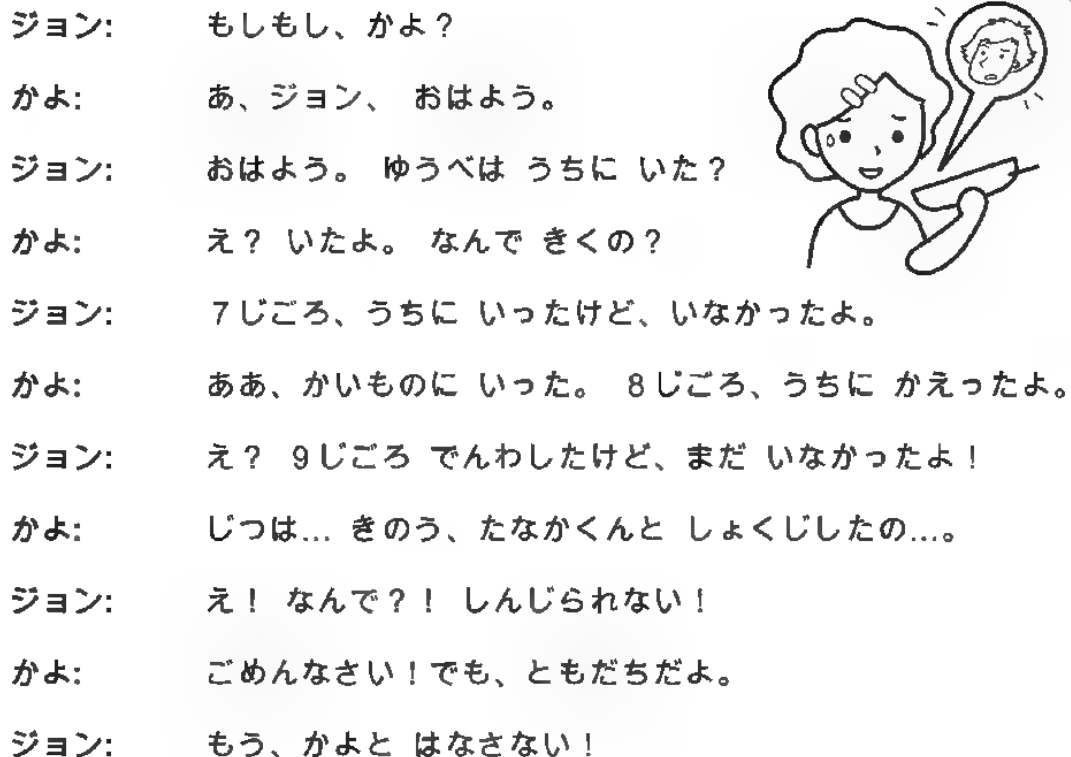 ジョン: もしもし、かよ？
かよ: あ、ジョン、 おはよう。
ジョン: おはよう。 ゆうべは うちに いた？
かよ: え？ いたよ。 なんで きくの？
ジョン: ７じごろ、うちに いったけど、いなかったよ。
かよ: ああ、かいものに いった。 ８じごろ、うちに かえったよ。
ジョン: え？ ９じごろ でんわしたけど、まだ いなかったよ！
かよ: じつは... きのう、たなかくんと しょくじしたの...。
ジョン: え！ なんで？！ しんじられない！
かよ: ごめんなさい！でも、ともだちだよ。
ジョン: もう、かよと はなさない！